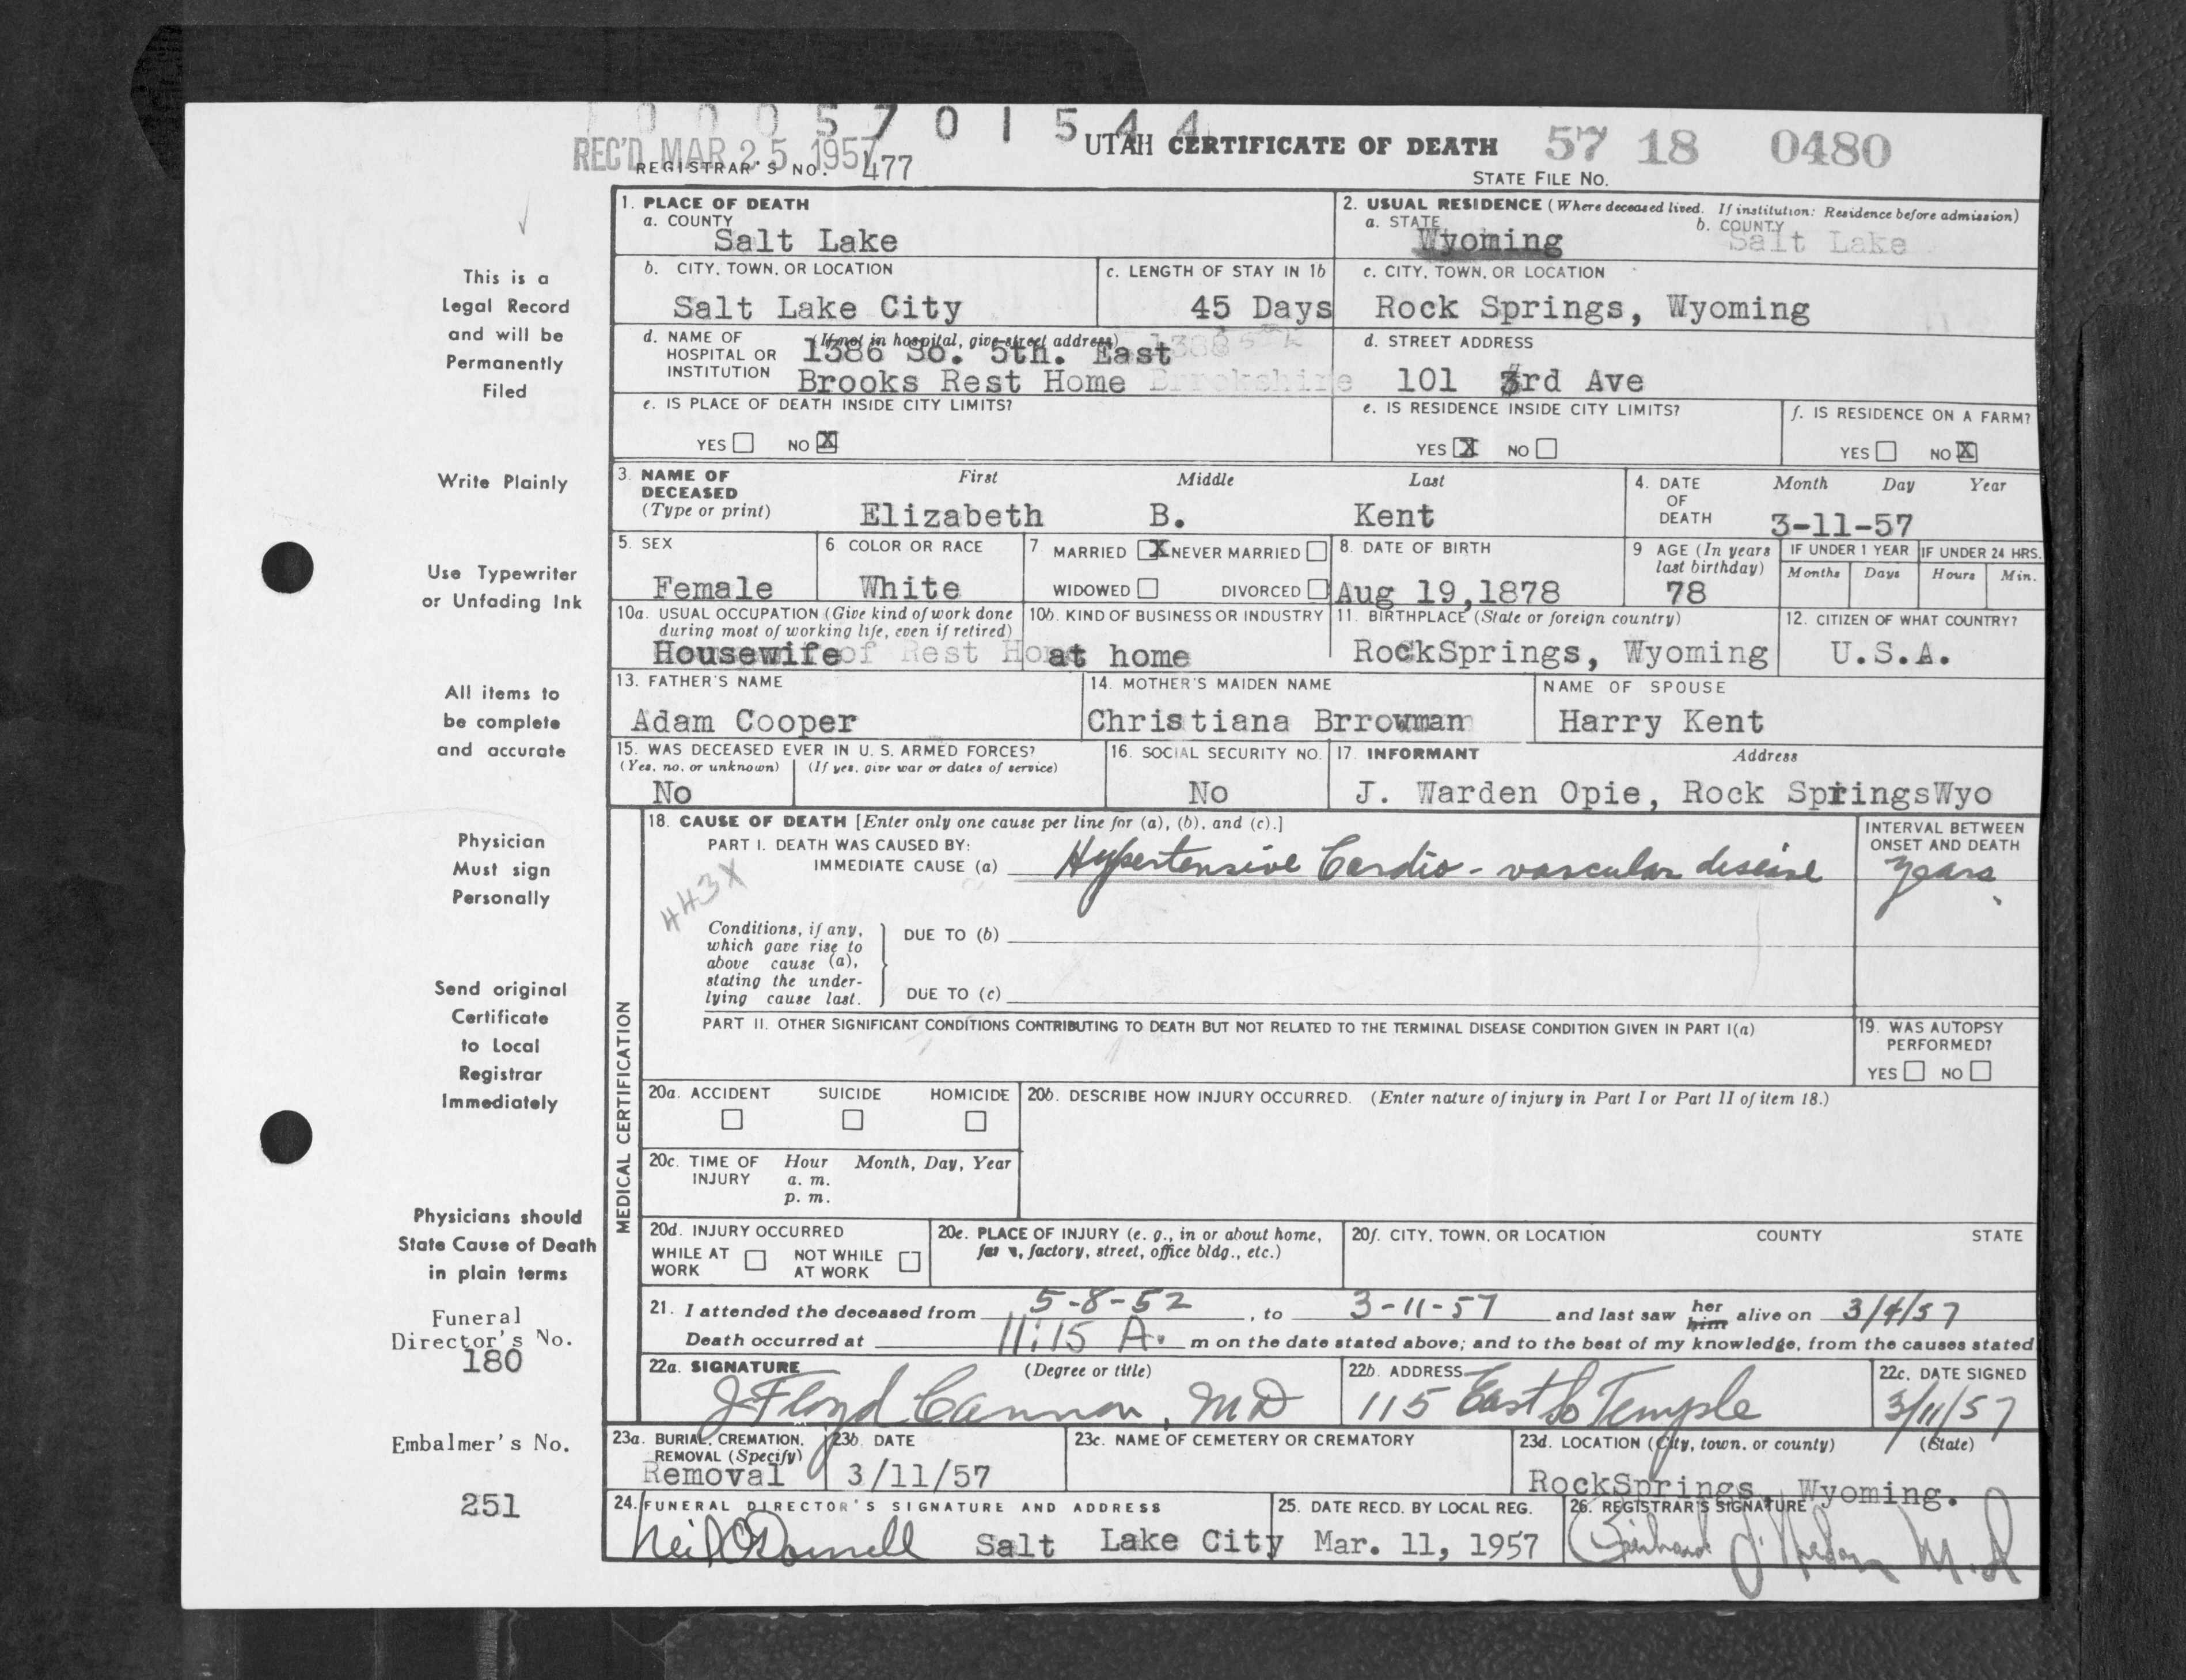 0005701544
REC'D MAR 25 1957
REGISTRAR'S NO. 477
UTAH CERTIFICATE OF DEATH
57 18 0480
STATE FILE NO.
This is a
Legal Record
and will be
Permanently
Filed
Write Plainly
Use Typewriter
or Unfading Ink
All items to
be complete
and accurate
Physician
Must sign
Personally
Send original
Certificate
to Local
Registrar
Immediately
Physicians should
State Cause of Death
in plain terms
Funeral
Director's No.
180
Embalmer's No.
251
1. PLACE OF DEATH
a. COUNTY
Salt Lake
2. USUAL RESIDENCE (Where deceased lived. If institution: Residence before admission)
a. STATE
Wyoming
b. COUNTY
Salt Lake
b. CITY, TOWN, OR LOCATION
Salt Lake City
c. LENGTH OF STAY IN 1b
45 Days
c. CITY, TOWN, OR LOCATION
Rock Springs, Wyoming
d. NAME OF HOSPITAL OR INSTITUTION
(If not in hospital, give street address)
1386 So. 5th. East
Brooks Rest Home Brrokshire
d. STREET ADDRESS
101 3rd Ave
e. IS PLACE OF DEATH INSIDE CITY LIMITS?
YES NO X
e. IS RESIDENCE INSIDE CITY LIMITS?
YES X NO
f. IS RESIDENCE ON A FARM?
YES NO X
3. NAME OF DECEASED
(Type or print)
First Middle Last
Elizabeth B. Kent
4. DATE OF DEATH
Month Day Year
3-11-57
5. SEX
Female
6 COLOR OR RACE
White
7 MARRIED X NEVER MARRIED
WIDOWED DIVORCED
8. DATE OF BIRTH
Aug 19,1878
9 AGE (In years last birthday)
78
IF UNDER 1 YEAR
Months Days
IF UNDER 24 HRS.
Hours Min.
10a. USUAL OCCUPATION (Give kind of work done
during most of working life, even if retired)
Housewife of Rest Ho
10b. KIND OF BUSINESS OR INDUSTRY
at home
11. BIRTHPLACE (State or foreign country)
RockSprings, Wyoming
12. CITIZEN OF WHAT COUNTRY?
U.S.A.
13. FATHER'S NAME
Adam Cooper
14. MOTHER'S MAIDEN NAME
Christiana Brrowman
NAME OF SPOUSE
Harry Kent
15. WAS DECEASED EVER IN U. S. ARMED FORCES?
(Yes, no, or unknown) (If yes, give war or dates of service)
No
16. SOCIAL SECURITY NO.
No
17. INFORMANT Address
J. Warden Opie, Rock SpringsWyo
MEDICAL CERTIFICATION
18. CAUSE OF DEATH [Enter only one cause per line for (a), (b), and (c).]
PART I. DEATH WAS CAUSED BY:
IMMEDIATE CAUSE (a) Hypertensive Cardio-vascular disease
INTERVAL BETWEEN
ONSET AND DEATH
years
443X
Conditions, if any,
which gave rise to
above cause (a),
stating the under-
lying cause last.
DUE TO (b)
DUE TO (c)
PART II. OTHER SIGNIFICANT CONDITIONS CONTRIBUTING TO DEATH BUT NOT RELATED TO THE TERMINAL DISEASE CONDITION GIVEN IN PART I(a)
19. WAS AUTOPSY
PERFORMED?
YES NO
20a. ACCIDENT SUICIDE HOMICIDE
20b. DESCRIBE HOW INJURY OCCURRED. (Enter nature of injury in Part I or Part II of item 18.)
20c. TIME OF INJURY
Hour Month, Day, Year
a. m.
p. m.
20d. INJURY OCCURRED
WHILE AT WORK NOT WHILE AT WORK
20e. PLACE OF INJURY (e. g., in or about home,
farm, factory, street, office bldg., etc.)
20f. CITY, TOWN, OR LOCATION COUNTY STATE
21. I attended the deceased from 5-8-52, to 3-11-57 and last saw her him alive on 3/4/57
Death occurred at 11:15 A. m on the date stated above; and to the best of my knowledge, from the causes stated
22a. SIGNATURE (Degree or title)
J Floyd Cannon, MD
22b. ADDRESS
115 East So Temple
22c. DATE SIGNED
3/11/57
23a. BURIAL, CREMATION,
REMOVAL (Specify)
Removal
23b DATE
3/11/57
23c. NAME OF CEMETERY OR CREMATORY
23d. LOCATION (City, town, or county) (State)
RockSprings, Wyoming.
24. FUNERAL DIRECTOR'S SIGNATURE AND ADDRESS
Neil O'Donnell Salt Lake City
25. DATE RECD. BY LOCAL REG.
Mar. 11, 1957
26. REGISTRAR'S SIGNATURE
M.D